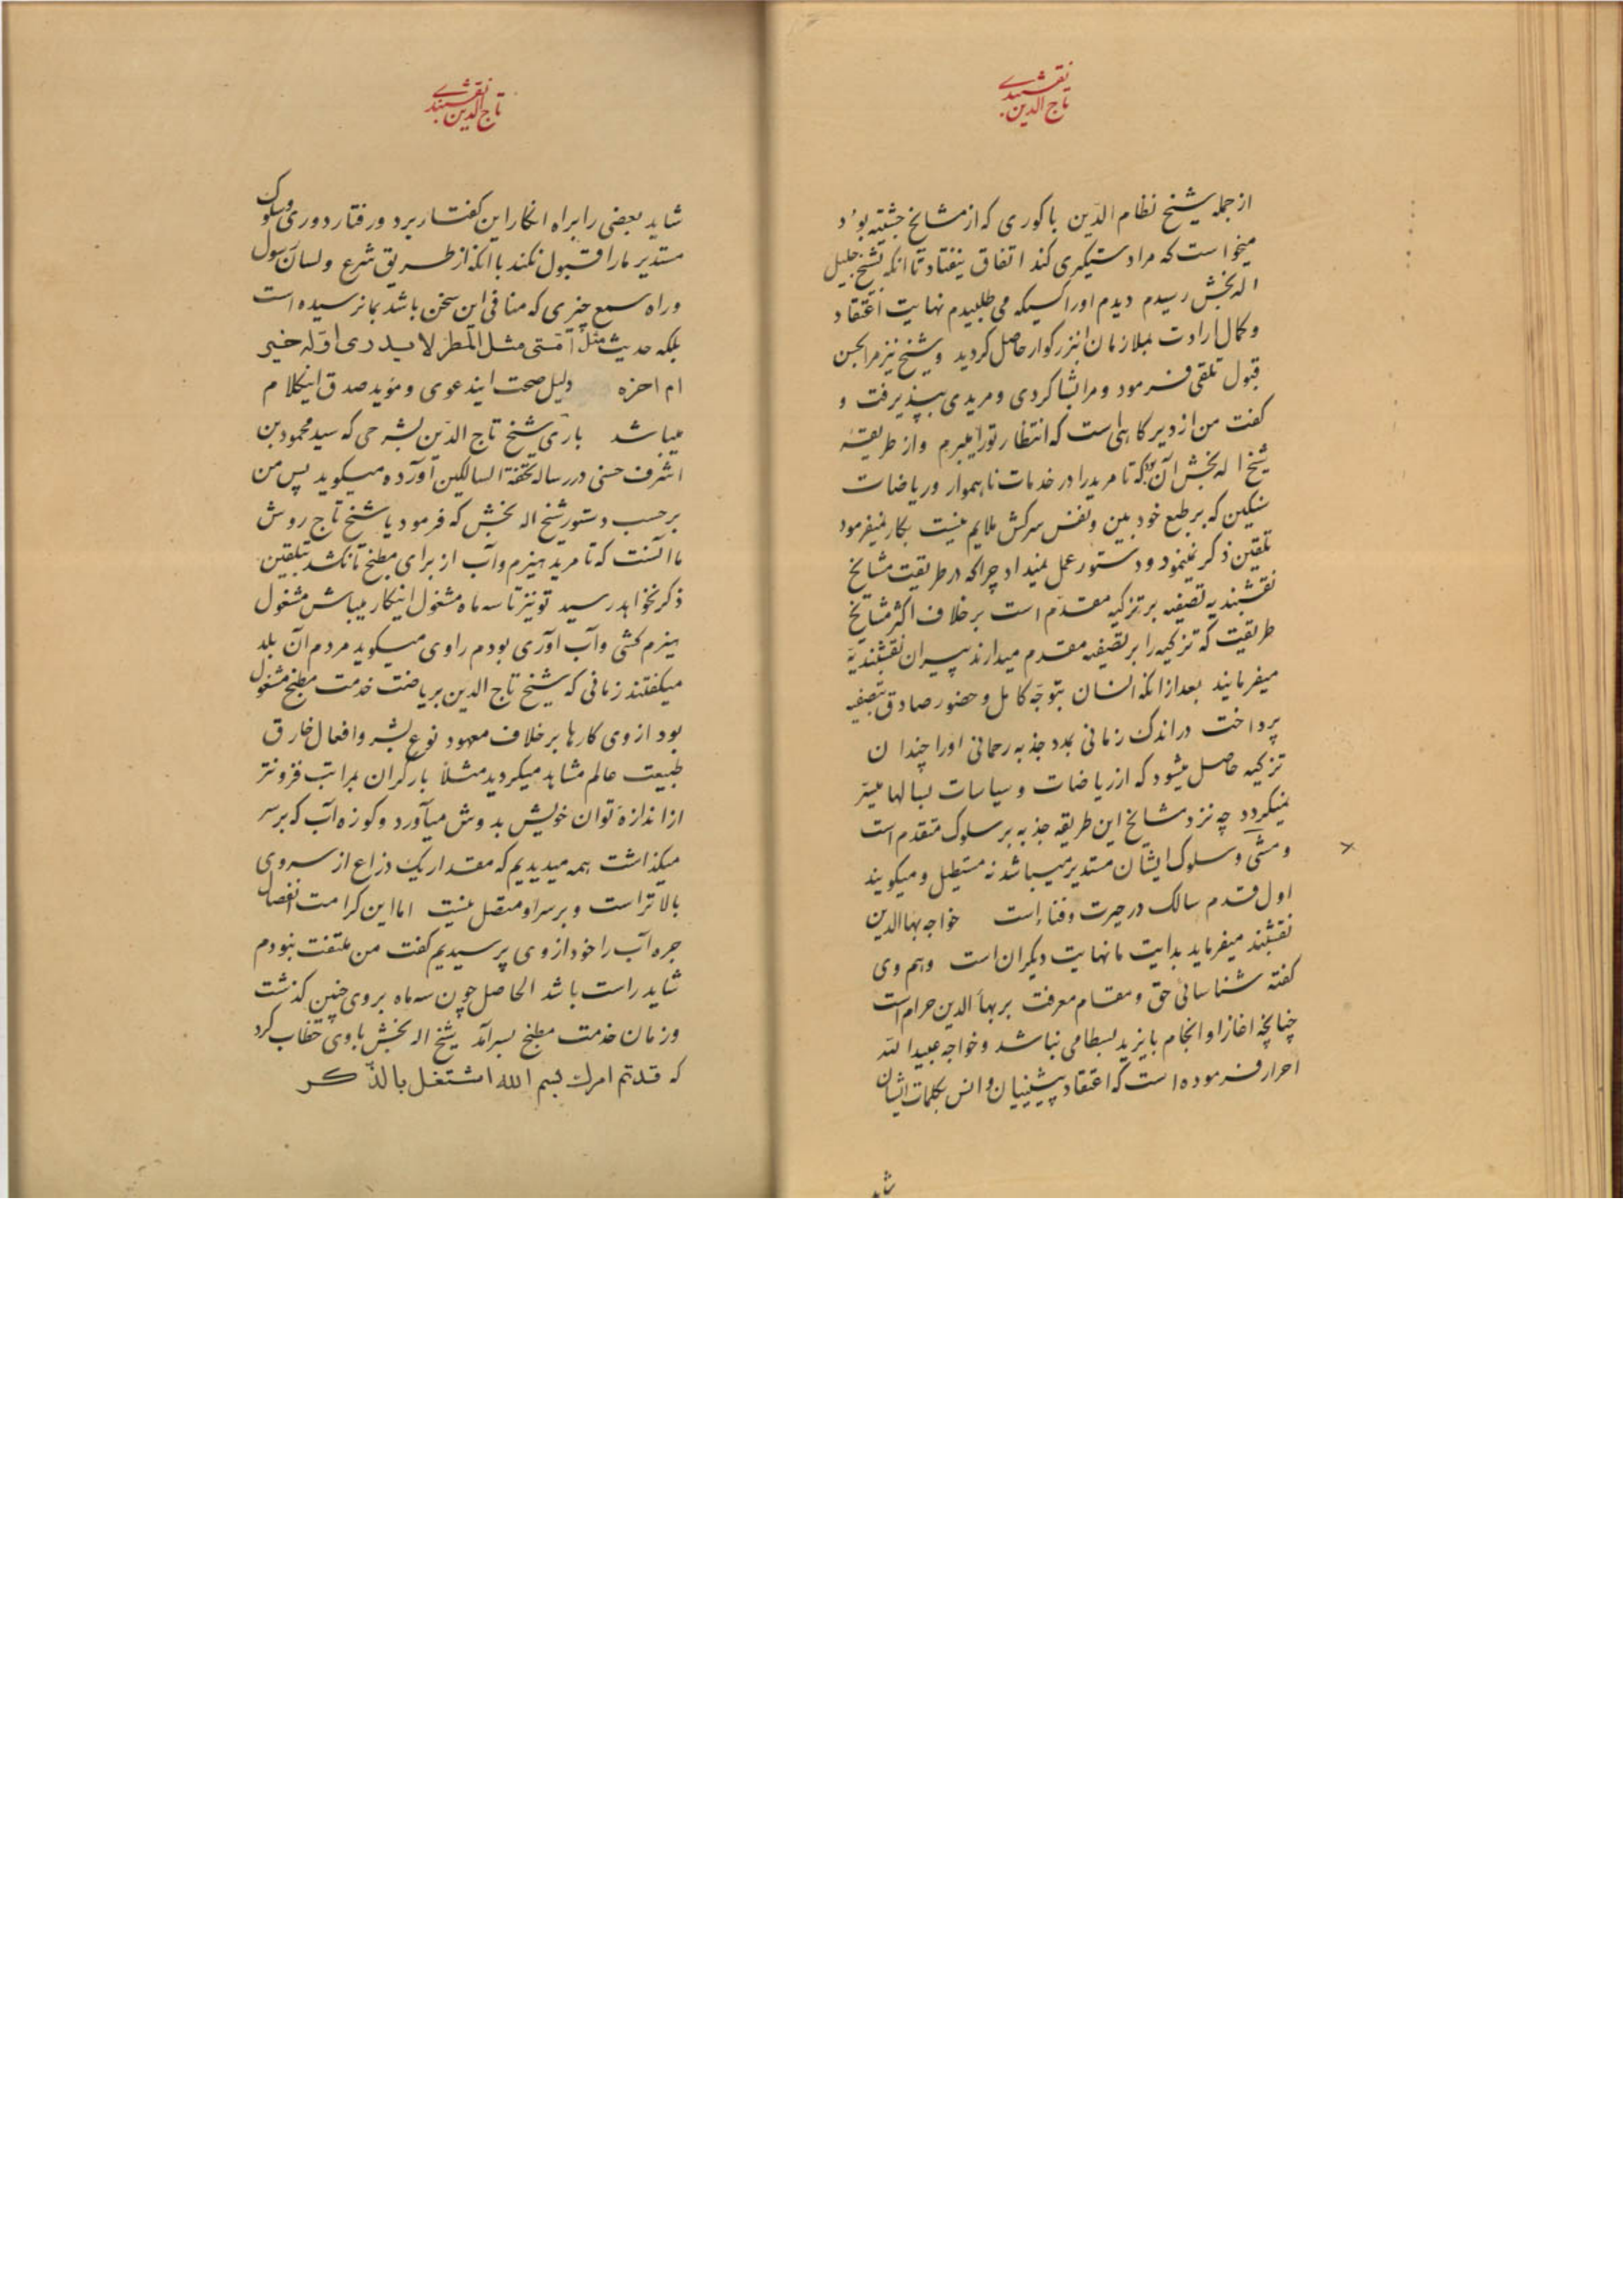 نقشبندی
تاج الدین
از جمله شیخ نظام الدین باکوری که از مشایخ چشتیه بود
میخواست که مرا دستگیری کند اتفاق نیفتاد تا انکه بشیخ جلیل
اله بخش رسیدم دیدم اورا کسیکه می طلبیدم نهایت اعتقاد
و کمال ارادت بملازمان انبزرکوار حاصل کردید و شیخ نیز مرا بحسن
قبول تلقی فرمود و مرا بشاکردی و مریدی بپذیرفت و
کفت من از دیر کاهی است که انتظار تورا میبرم و از طریقهٔ
شیخ اله بخش آن بود که تا مرید را در خدمات ناهموار و ریاضات
سنکین که بر طبع خود بین و نفس سرکش ملایم نیست بکار نمیفرمود
تلقین ذکر نمینمود و دستور عمل نمیداد چرا که در طریقت مشایخ
نقشبندیه تصفیه بر تزکیه مقدم است برخلاف اکثر مشایخ
طریقت که تزکیه را بر تصفیه مقدم میدارند پیران نقشبندیّه
میفرمایند بعد از انکه انسان بتوجّه کامل و حضور صادق بتصفیه
پرداخت در اندک زمانی بمدد جذبه رحمانی اورا چندان
تزکیه حاصل میشود که از ریاضات و سیاسات بسالها میسّر
نمیکردد چه نزد مشایخ این طریقه جذبه بر سلوک متقدم است
و مشی و سلوک ایشان مستدیر میباشد نه مستطیل و میکویند
اول قدم سالک در حیرت و فناء است خواجه بهاالدین
نقشبند میفرماید بدایت ما نهایت دیکران است و هم وی
کفته شناسائی حق و مقام معرفت بر بهاء الدین حرام است
چنانچه اغاز او انجام بایزید بسطامی نباشد و خواجه عبیدالله
احرار فرموده است که اعتقاد پیشینیان و انس بکلمات ایشان
شاید
نقشبندی
تاج الدین
شاید بعضی را براه انکار این کفتار برد و رفتار دوری و سلوک
مستدیر مارا قبول نکنند با انکه از طریق شرع و لسان رسول
و راه سمع چیزی که منافی این سخن باشد بما نرسیده است
بلکه حدیث مثل امّتی مثل المطر لا یدری اوّله خیر
ام اخره دلیل صحت ایندعوی و مؤید صدق اینکلام
میباشد باری شیخ تاج الدین بشرحی که سید محمود بن
اشرف حسنی در رساله تحفة السالکین آورده میکوید پس من
برحسب دستور شیخ اله بخش که فرمود یا شیخ تاج روش
ما آنست که تا مرید هیزم و آب از برای مطبخ ما نکشد بتلقین
ذکر نخواهد رسید تو نیز تا سه ماه مشغول اینکار میباش مشغول
هیزم کشی و آب آوری بودم راوی میکوید مردم آن بلد
میکفتند زمانی که شیخ تاج الدین بریاضت خدمت مطبخ مشغول
بود از وی کارها برخلاف معهود نوع بشر و افعال خارق
طبیعت عالم مشاهد میکردید مثلا بار کران بمراتب فزونتر
از اندازه توان خویش بدوش میآورد و کوزه آب که بر سر
میکذاشت همه میدیدیم که مقدار یک ذراع از سر وی
بالاتر است و بر سر او متصل نیست اما این کرامت انفصال
جره آب را خود از وی پرسیدیم کفت من ملتفت نبودم
شاید راست باشد الحاصل چون سه ماه بر وی چنین کذشت
و زمان خدمت مطبخ بسر آمد شیخ اله بخش با وی خطاب کرد
که قد تم امرک بسم الله اشتغل بالذّکر